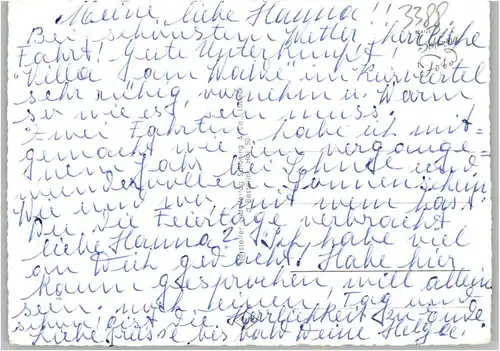 Meine liebe Hanna!!
3388
Bei schönstem Wetter herrliche
Fahrt! Gute Unterkunft
Villa am Walde im Kurviertel
sehr ruhig, vornehm u. warm
so wie es sein muss.
Zwei Fahrten habe ich mit=
gemacht wie im vergange=
nem Jahr bei Schnee und
wundervollem Sonnenschein
Wie und wo mit wem hast
Du die Feiertage verbracht
liebe Hanna? Ich habe viel
an Dich gedacht. Habe hier
kaum gesprochen, will allein
sein. noch einen Tag und
schon ist die Herrlichkeit zu Ende
Liebe Grüsse bis bald Deine Helga.
Foto